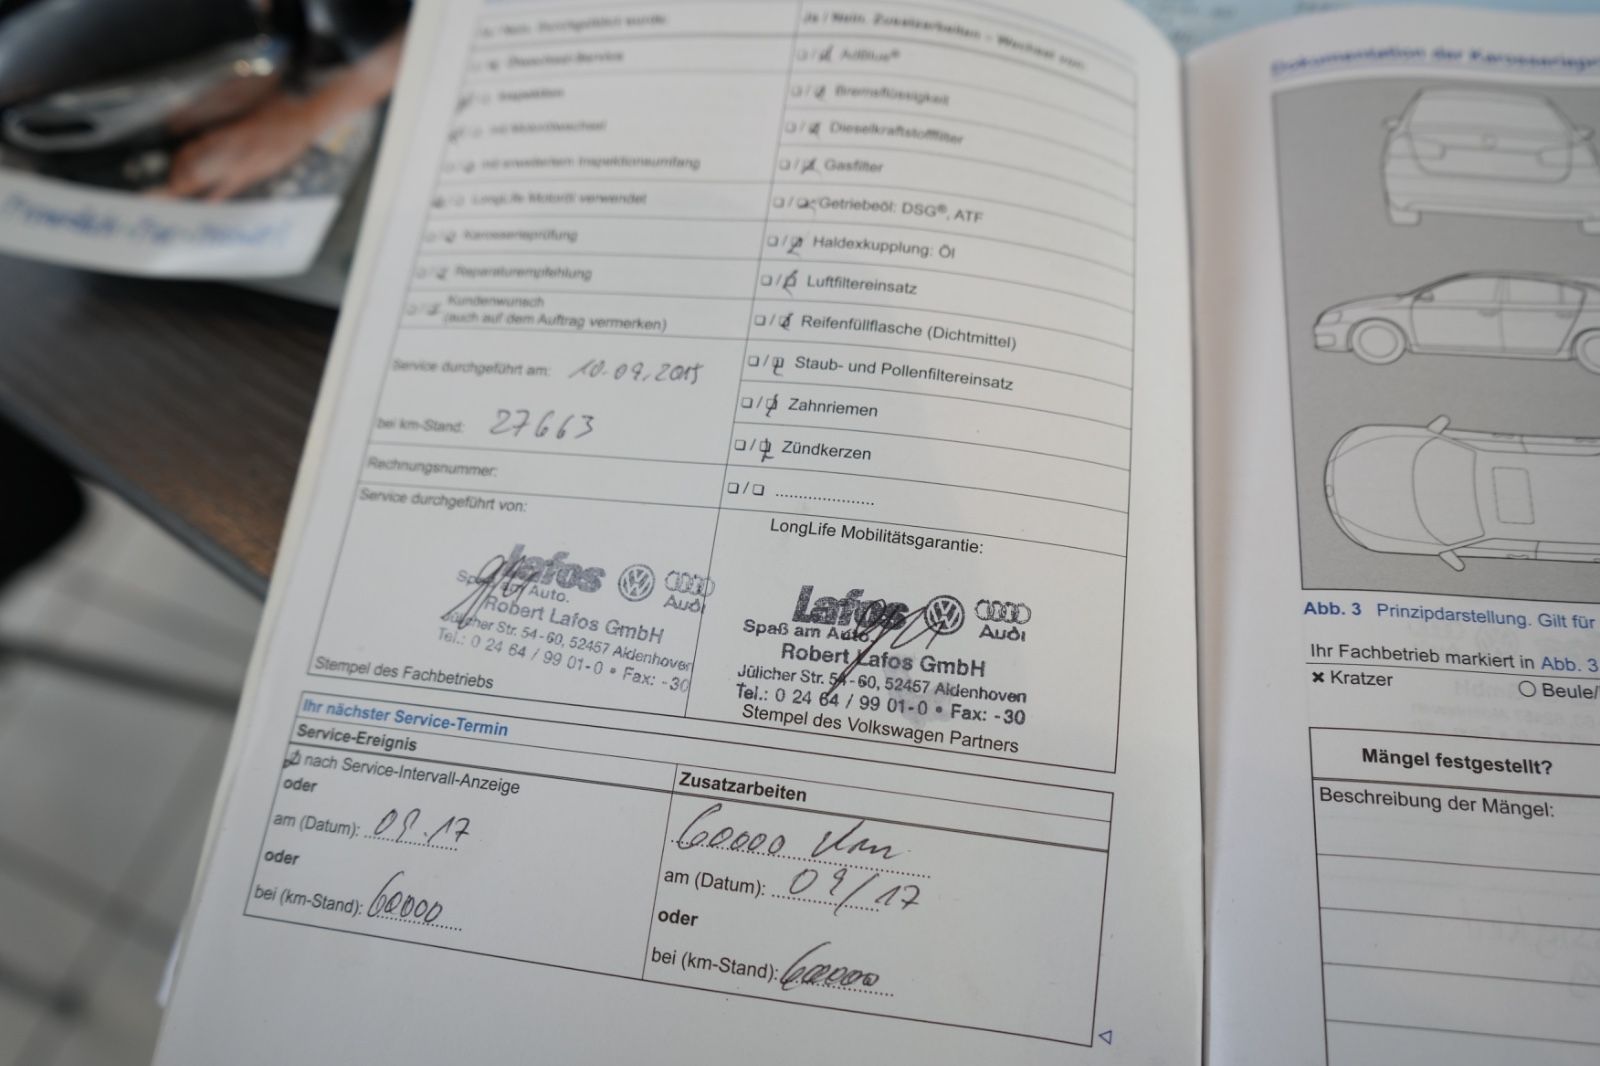 Ja / Nein. Durchgeführt wurde:
Ölwechsel-Service
Inspektion
mit Motorölwechsel
mit erweitertem Inspektionsumfang
LongLife Motoröl verwendet
Karosserieprüfung
Reparaturempfehlung
Kundenwunsch
(auch auf dem Auftrag vermerken)
Service durchgeführt am: 10.09.2015
bei km-Stand: 27663
Rechnungsnummer:
Service durchgeführt von:
Lafos
Spaß am Auto.
Audi
Robert Lafos GmbH
Jülicher Str. 54-60, 52457 Aldenhoven
Tel.: 0 24 64 / 99 01-0 • Fax: -30
Stempel des Fachbetriebs
Ja / Nein. Zusatzarbeiten – Wechsel von:
AdBlue®
Bremsflüssigkeit
Dieselkraftstofffilter
Gasfilter
Getriebeöl: DSG®, ATF
Haldexkupplung: Öl
Luftfiltereinsatz
Reifenfüllflasche (Dichtmittel)
Staub- und Pollenfiltereinsatz
Zahnriemen
Zündkerzen
LongLife Mobilitätsgarantie:
Lafos
Spaß am Auto.
Audi
Robert Lafos GmbH
Jülicher Str. 54-60, 52457 Aldenhoven
Tel.: 0 24 64 / 99 01-0 • Fax: -30
Stempel des Volkswagen Partners
Ihr nächster Service-Termin
Service-Ereignis
nach Service-Intervall-Anzeige
oder
am (Datum): 09.17
oder
bei (km-Stand): 60000
Zusatzarbeiten
60000 Km
am (Datum): 09/17
oder
bei (km-Stand): 60000
Dokumentation der
Abb. 3 Prinzipdarstellung. Gilt für
Ihr Fachbetrieb markiert in Abb. 3
× Kratzer
○ Beule/
Mängel festgestellt?
Beschreibung der Mängel: